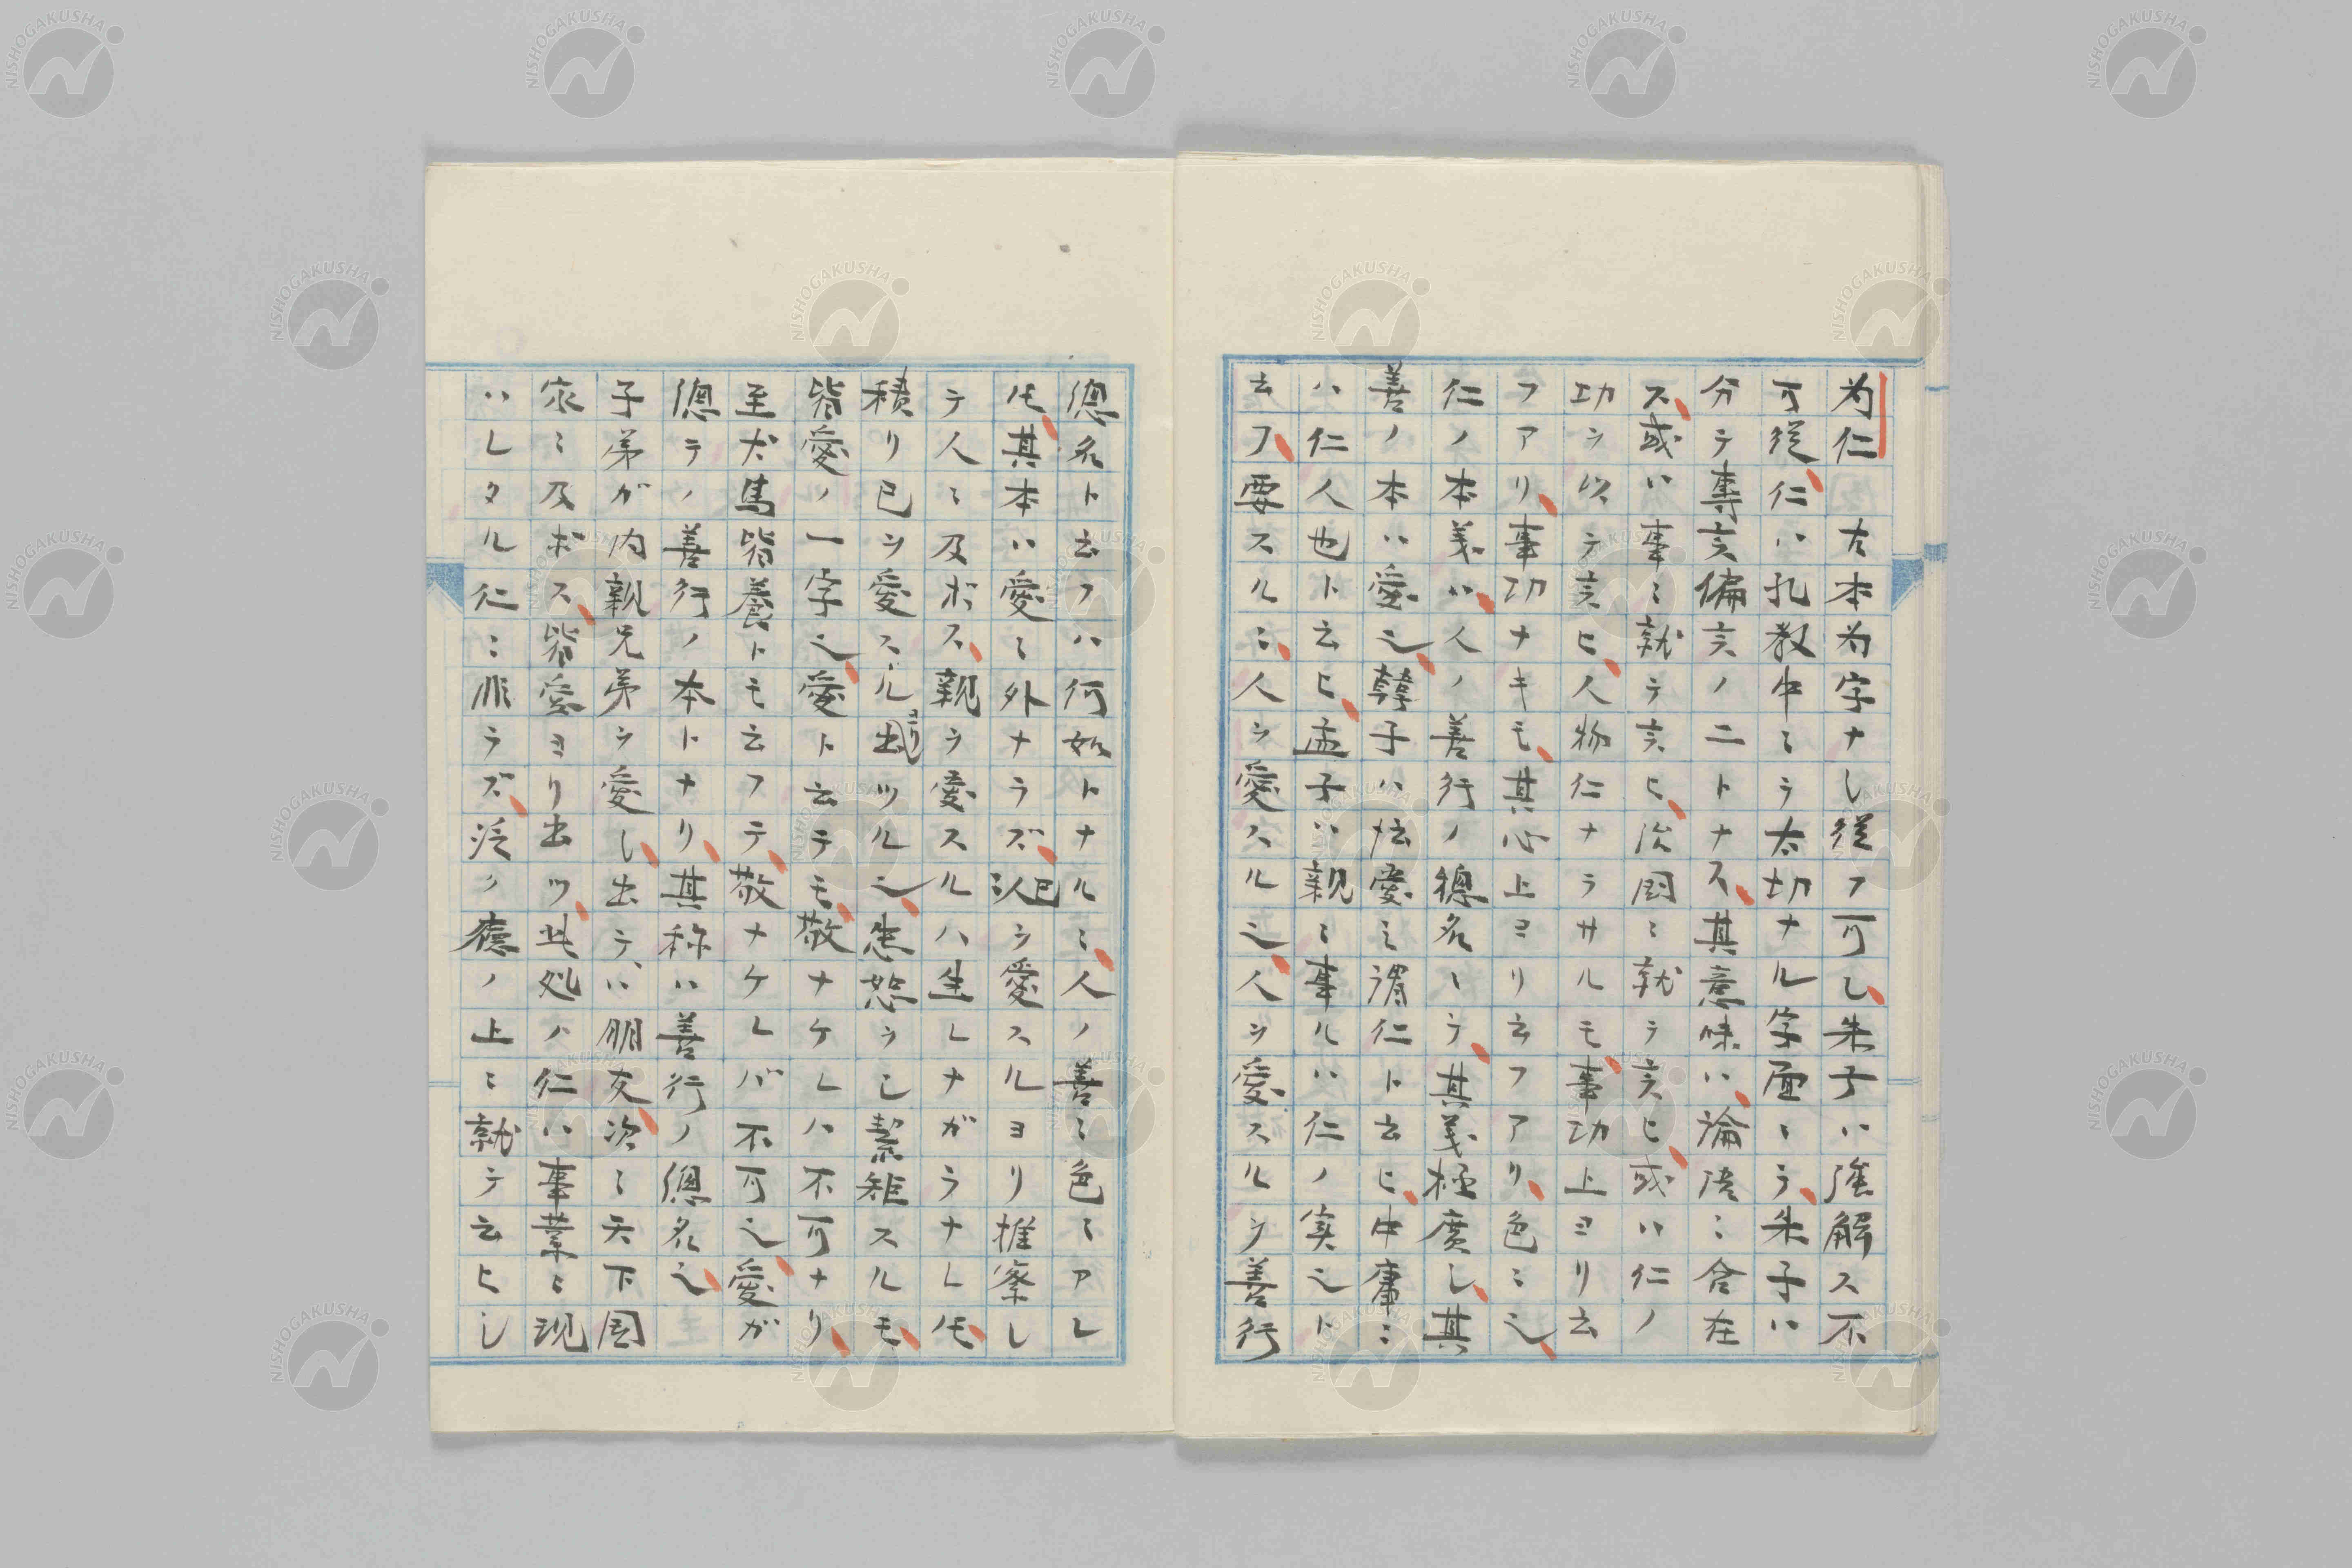 为仁　古本为字ナし從フ可し朱子ハ強解ス不
可從仁ハ孔教中ニテ太切ナル字面ニテ朱子ハ
分テ專言偏言ノ二トナス其意味ハ論語ニ含在
ス或ハ事ニ就テ言ヒ治国ニ就テ言ヒ或ハ仁ノ
功ヲ以テ言ヒ人物仁ナラサルモ事功上ヨリ云
フアリ事功ナキモ其心上ヨリ云フアリ色ミ之
仁ノ本義ハ人ノ善行ノ總名ニテ其義極廣し其
善ノ本ハ愛之韓子ハ博愛之謂仁ト云ヒ中庸ニ
ハ仁人也ト云ヒ孟子ハ親ニ事ルハ仁ノ実之ト
云フ要スルニ人ヲ愛スル之人ヲ愛スルヲ善行
總名ト云フハ何如トナルニ人ノ善ニ色ミアレ
𪜈其本ハ愛ニ外ナラズ以己ヲ愛スルヨリ推察し
テ人ニ及ボス親ヲ愛スルハ生レナガラナレ𪜈
積リ己ヲ愛スルヨリ出ツル之忠恕ラし絜矩スルモ
皆愛ノ一字之愛ト云テモ敬ナケレハ不可ナリ
至犬馬皆養トモ云フテ敬ナケレバ不可之愛ガ
總テノ善行ノ本トナリ其称ハ善行ノ總名之
子弟ガ内親兄弟ヲ愛し出テハ朋友次ニ天下国
家ニ及ボス皆愛ヨリ出ツ此処ハ仁ハ事業ニ現
ハレタル仁ニ非ラズ泛ク應ノ上ニ就テ云ヒし